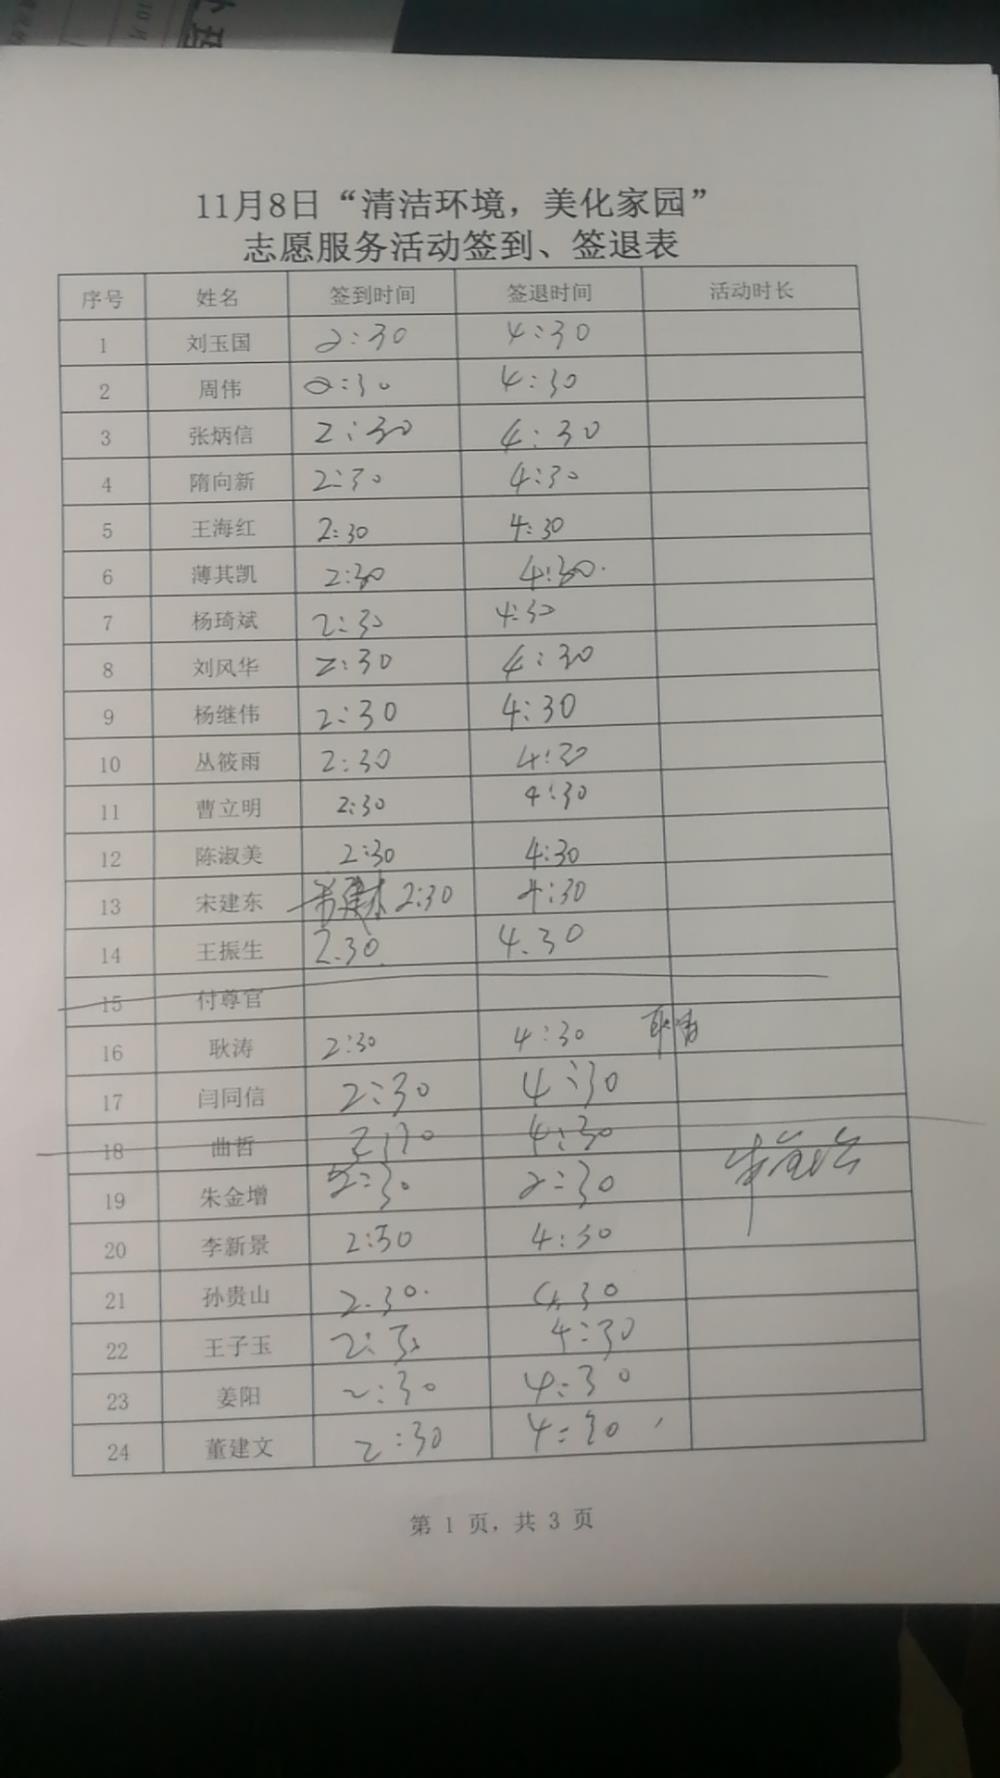 11月8日“清洁环境，美化家园”
志愿服务活动签到、签退表
序号 姓名 签到时间 签退时间 活动时长
1 刘玉国 2:30 4:30
2 周伟 2:30 4:30
3 张炳信 2:30 4:30
4 隋向新 2:30 4:30
5 王海红 2:30 4:30
6 薄其凯 2:30 4:30
7 杨琦斌 2:30 4:30
8 刘风华 2:30 4:30
9 杨继伟 2:30 4:30
10 丛筱雨 2:30 4:30
11 曹立明 2:30 4:30
12 陈淑美 2:30 4:30
13 宋建东 2:30 4:30
14 王振生 2.30 4.30
15 付尊官
16 耿涛 2:30 4:30 耿涛
17 闫同信 2:30 4:30
18 曲哲 4:30
19 朱金增 2:30 2:30
20 李新景 2:30 4:30
21 孙贵山 2.30 4.30
22 王子玉 2:30 4:30
23 姜阳 2:30 4:30
24 董建文 2:30 4:30
第 1 页，共 3 页